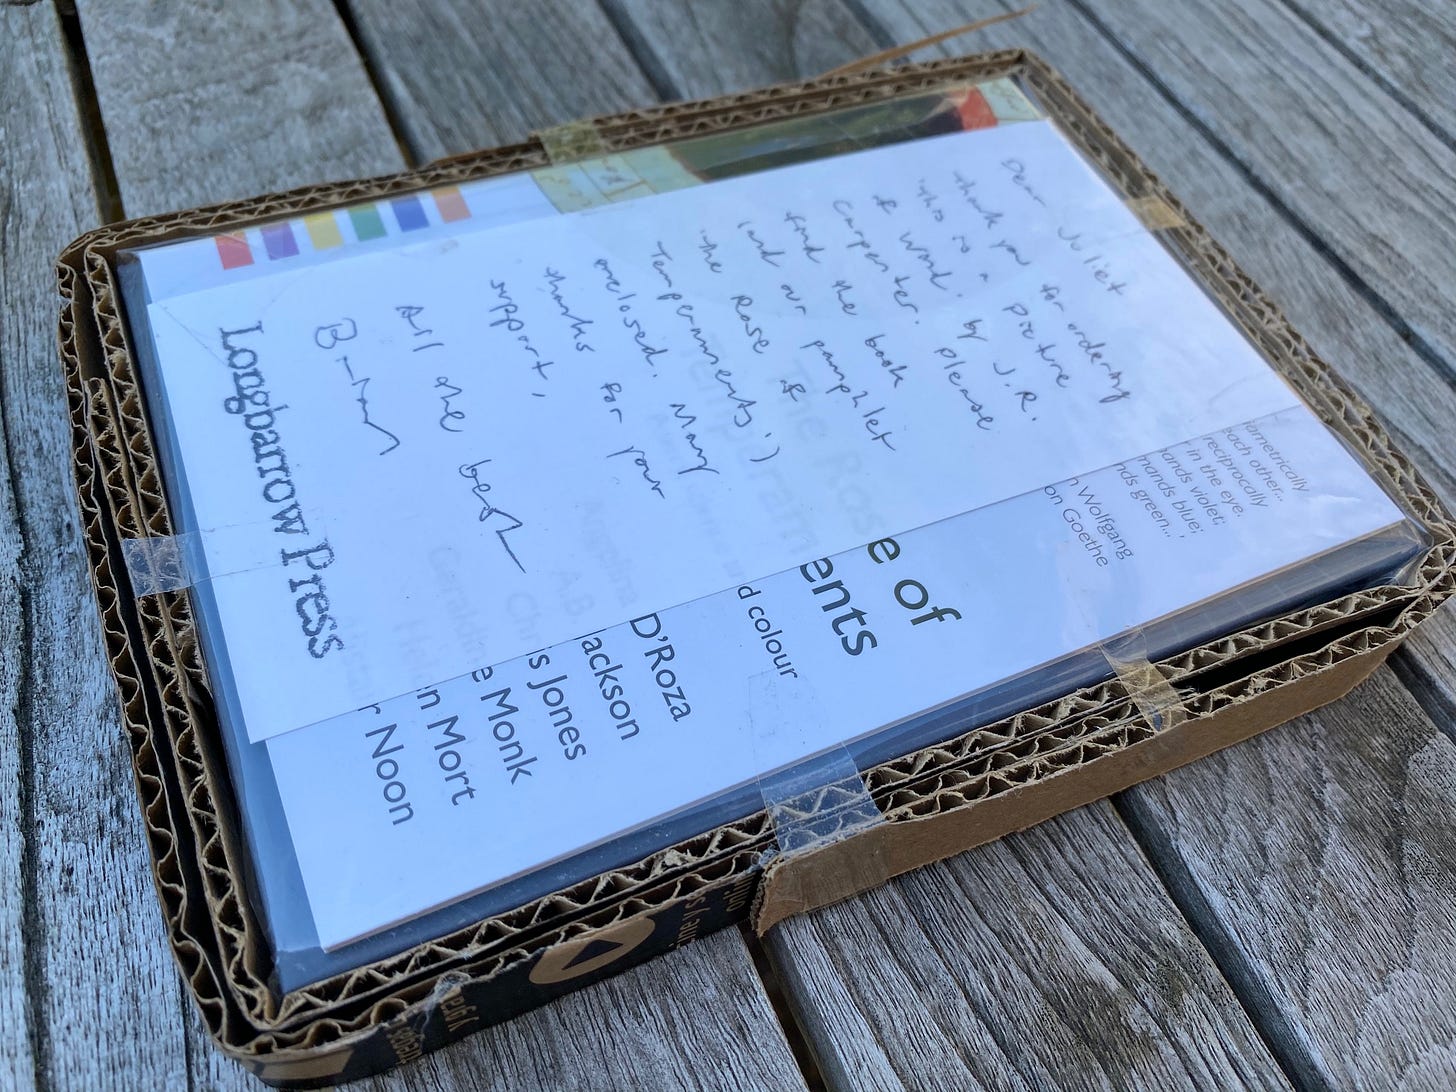 Dear Juliet
thank you for ordering
this is a picture
of Wind. by J.R.
Carpenter. Please
find the book
(and our pamphlet
The Rose of
Temperaments!)
enclosed. Many
thanks for your
support,
All the best
Brian
Longbarrow Press
iametrically
each other...
reciprocally
in the eye.
ands violet;
mands blue;
nds green...
n Wolfgang
on Goethe
The Rose of
Temperaments
d colour
Angelina D'Roza
A.B. Jackson
Chris Jones
Geraldine Monk
Helen Mort
Alistair Noon